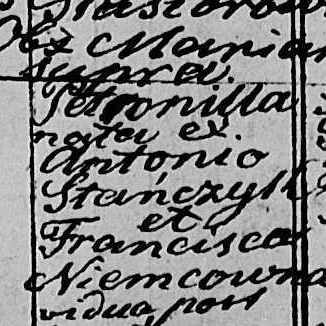 Obz Marian
supra.
Petronilla
nata ex
Antonio
Stańczyk
et
Francisca
Niemcowna
vidua post